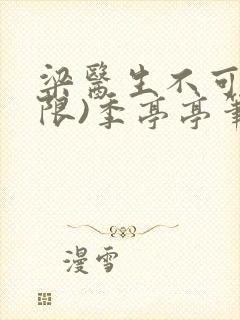 梁醫生不可
限)季亭亭
漫雪